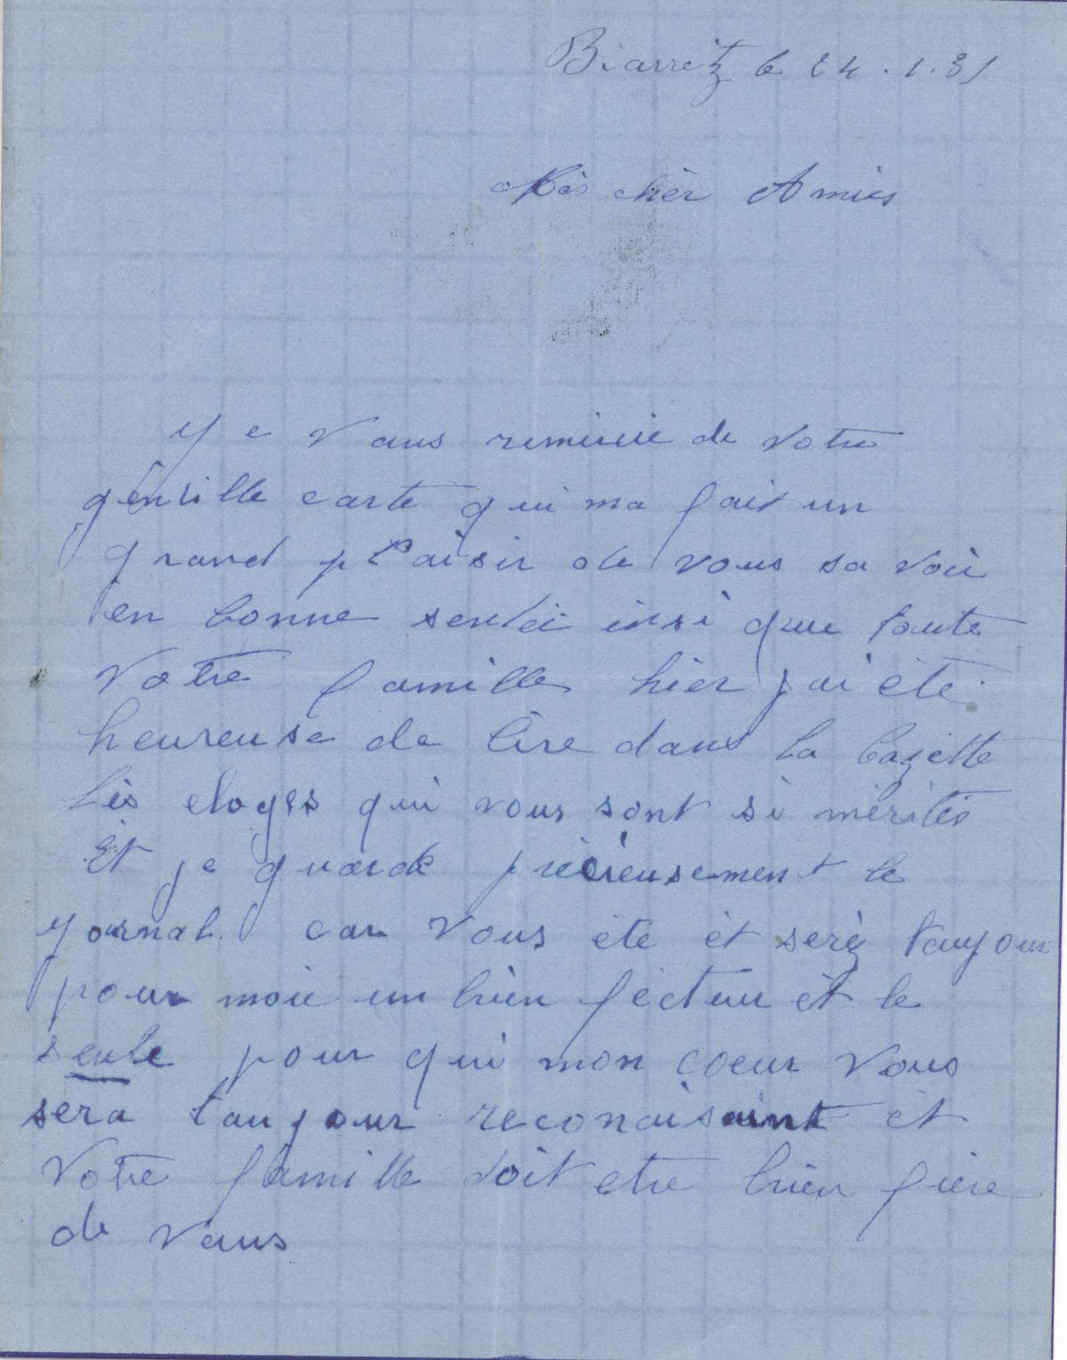 Biarritz le 24.1.31
Mes chèr Amies
Je vous remercie de votre
gentille carte qui ma fait un
grand plaisir de vous sa voir
en bonne sentéé insi que toute
votre famille hier j'ai été
heureuse de lire dans la Gazette
lès eloges qui vous sont si mérités
Et je guarde précieusement le
journal. car vous éte èt serèz toujour
pour moie un bien fécteur èt le
seule pour qui mon coeur vous
sera toujour reconaisaint èt
votre famille doit etre bien fiere
de vous